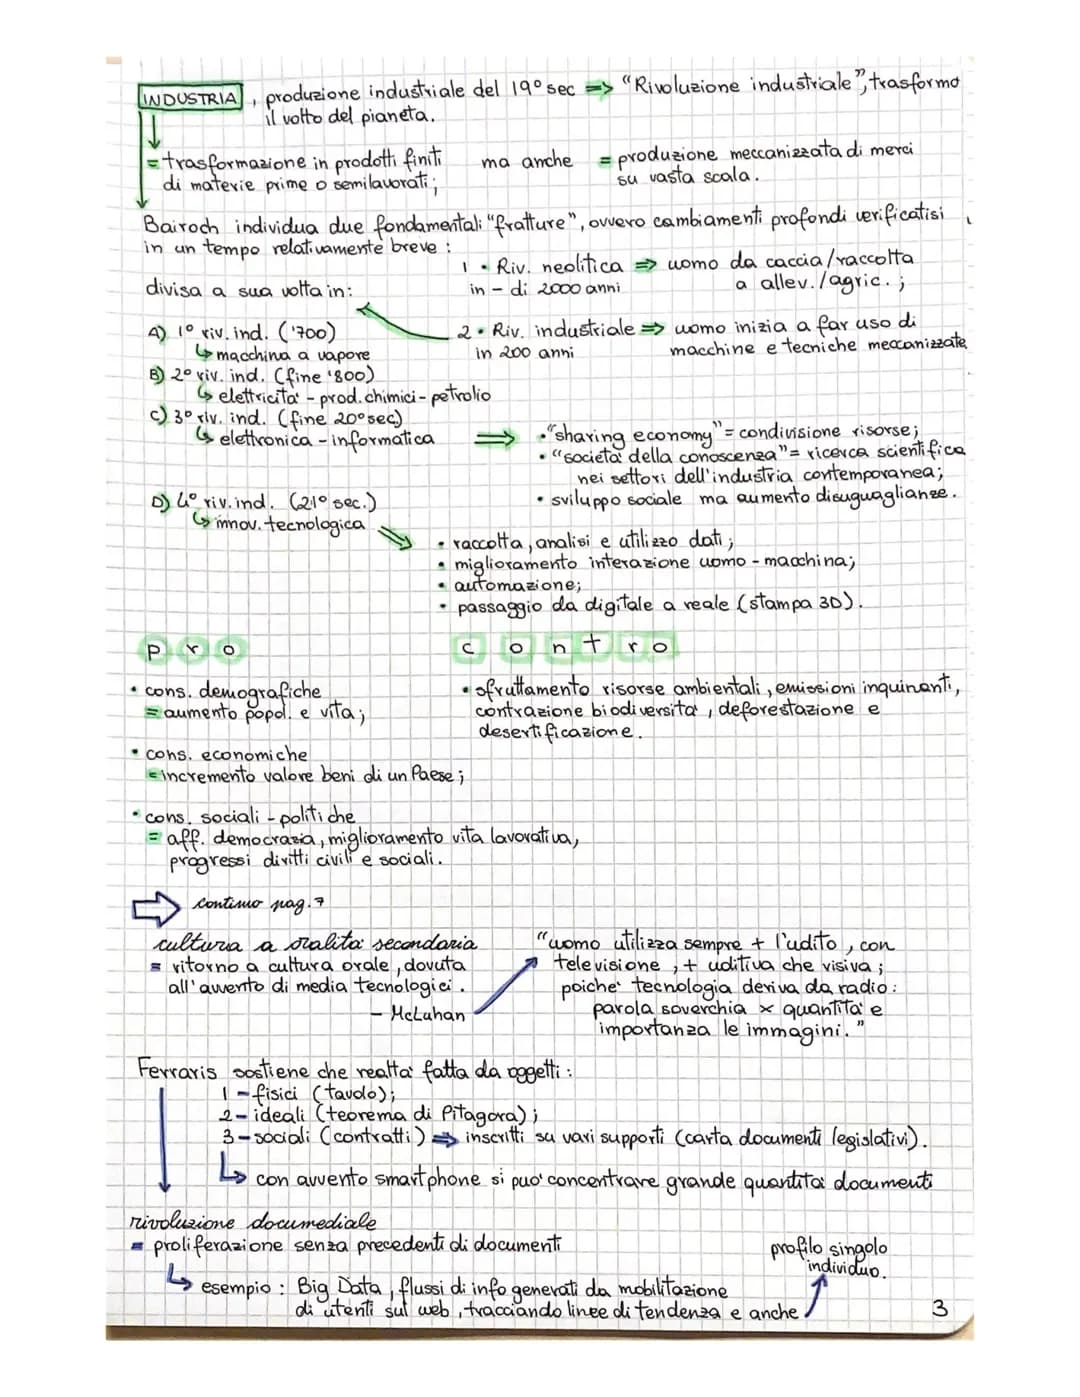 INDUSTRIA, produzione industriale del 19° sec => "Rivoluzione industriale", trasformò
il volto del pianeta.
= trasformazione in prodotti finiti ma anche = produzione meccanizzata di merci
di materie prime o semilavorati; su vasta scala.
Bairoch individua due fondamentali "fratture", ovvero cambiamenti profondi verificatisi
in un tempo relativamente breve :
1 • Riv. neolitica => uomo da caccia/raccolta
in - di 2000 anni a allev./agric. ;
divisa a sua volta in:
2 • Riv. industriale => uomo inizia a far uso di
in 200 anni macchine e tecniche meccanizzate
A) 1° riv. ind. ('700)
↳ macchina a vapore
B) 2° riv. ind. (fine '800)
↳ elettricità - prod. chimici - petrolio
C) 3° riv. ind. (fine 20° sec)
↳ elettronica - informatica => • "sharing economy" = condivisione risorse;
• "società della conoscenza" = ricerca scientifica
nei settori dell'industria contemporanea;
• sviluppo sociale ma aumento disuguaglianze.
D) 4° riv. ind. (21° sec.)
↳ innov. tecnologica
• raccolta, analisi e utilizzo dati ;
• miglioramento interazione uomo - macchina;
• automazione;
• passaggio da digitale a reale (stampa 3D).
pro contro
• cons. demografiche
= aumento popol. e vita ;
• sfruttamento risorse ambientali, emissioni inquinanti,
contrazione biodiversità, deforestazione e
desertificazione.
• cons. economiche
= incremento valore beni di un Paese ;
• cons. sociali - politiche
= aff. democrazia, miglioramento vita lavorativa,
progressi diritti civili e sociali.
=> continuo pag. 7
cultura a oralità secondaria
= ritorno a cultura orale, dovuta
all'avvento di media tecnologici.
- McLuhan
"uomo utilizza sempre + l'udito, con
televisione, + uditiva che visiva ;
poiché tecnologia deriva da radio :
parola soverchia x quantità e
importanza le immagini."
Ferraris sostiene che realtà fatta da oggetti :
1 - fisici (tavolo);
2 - ideali (teorema di Pitagora) ;
3 - sociali (contratti) => inscritti su vari supporti (carta documenti legislativi).
↳ con avvento smartphone si può concentrare grande quantità documenti
rivoluzione documediale
= proliferazione senza precedenti di documenti
↳ esempio : Big Data, flussi di info generati da mobilitazione
di utenti sul web, tracciando linee di tendenza e anche
profilo singolo
individuo.
3